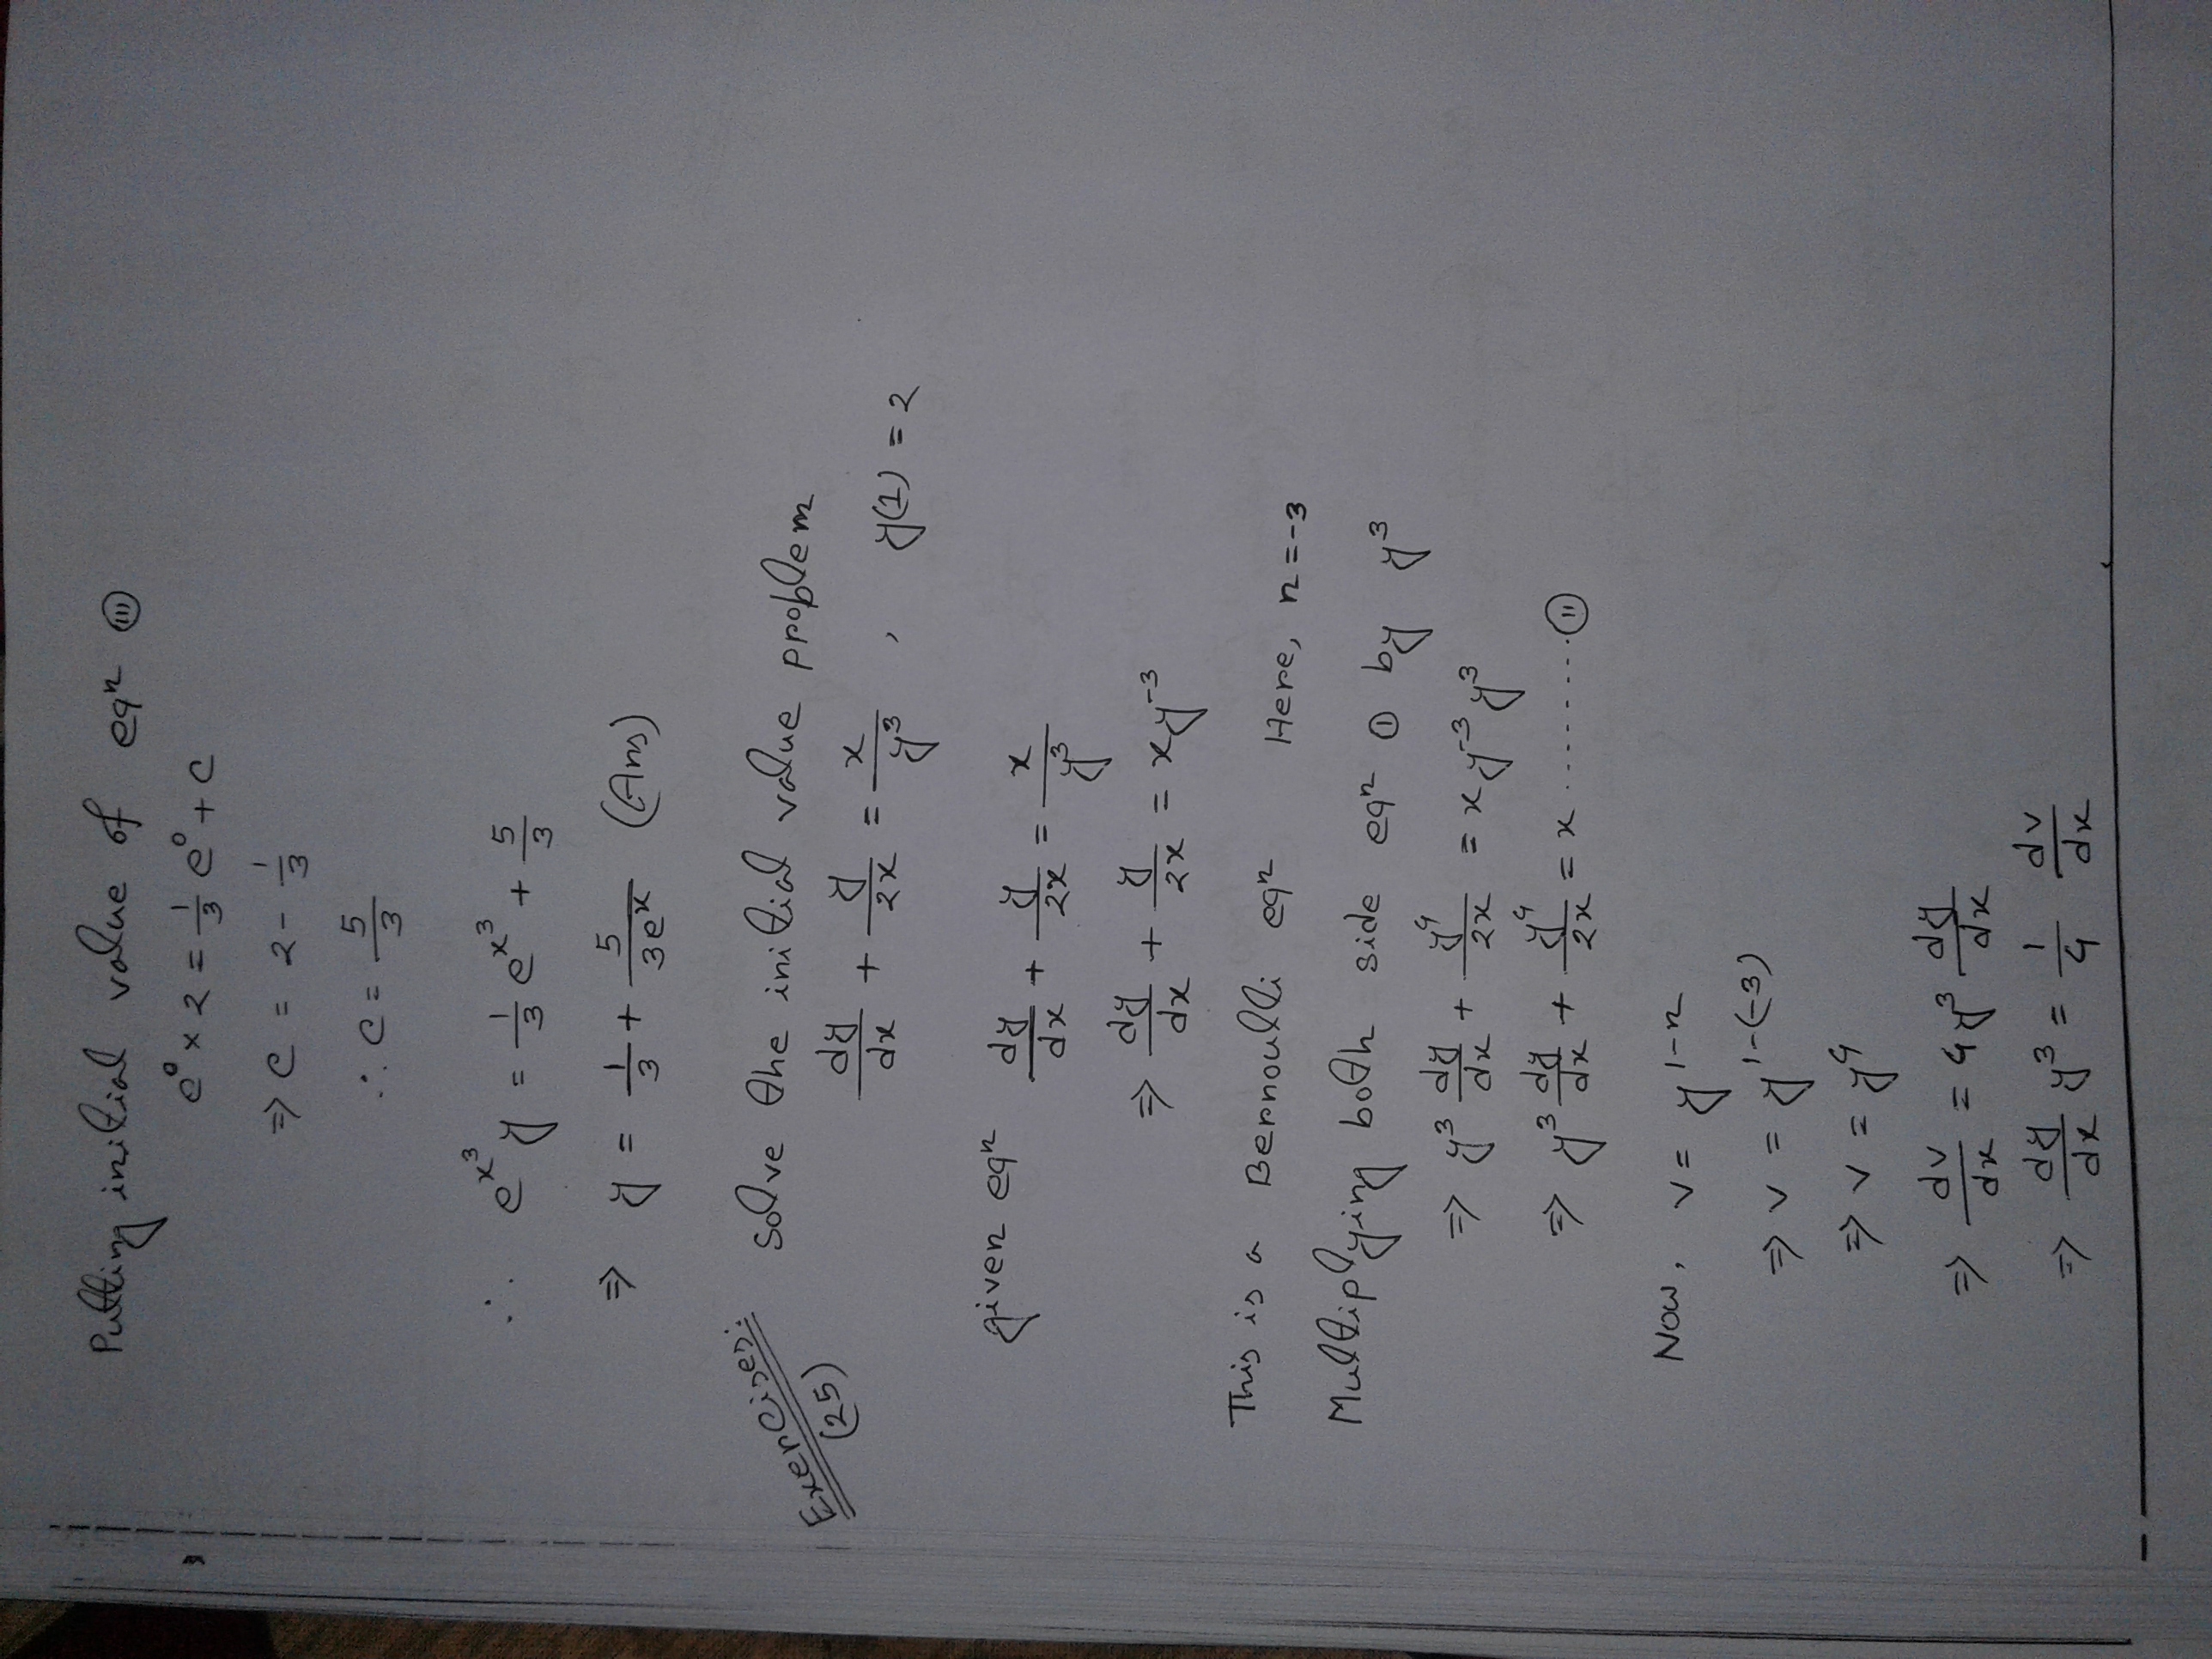 Putting initial value of eqⁿ (III)
e⁰ × 2 = 1/3 e⁰ + c
⇒ c = 2 - 1/3
∴ c = 5/3
∴ e^x³ y = 1/3 e^x³ + 5/3
⇒ y = 1/3 + 5/3eˣ (Ans)
Exercises:
(25)
Solve the initial value problem
dy/dx + y/2x = x/y³ , y(1) = 2
given eqⁿ dy/dx + y/2x = x/y³
⇒ dy/dx + y/2x = xy⁻³
This is a Bernoulli eqⁿ Here, n = -3
Multiplying both side eqⁿ (I) by y³
⇒ y³ dy/dx + y⁴/2x = x y⁻³ y³
⇒ y³ dy/dx + y⁴/2x = x ........ (II)
Now, v = y¹⁻ⁿ
⇒ v = y^1-(-3)
⇒ v = y⁴
⇒ dv/dx = 4y³ dy/dx
⇒ dy/dx y³ = 1/4 dv/dx